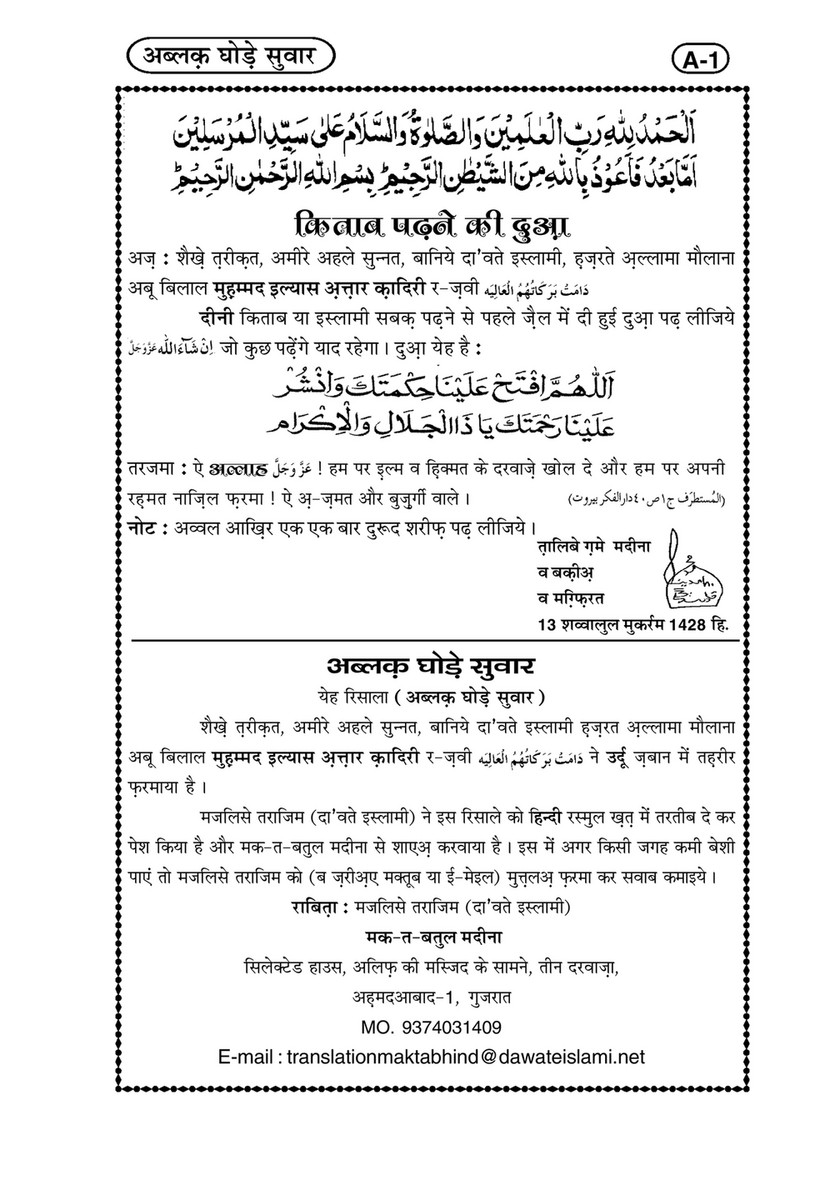 अब्लक़ घोड़े सुवार
A-1
اَلْحَمْدُ لِلّٰهِ رَبِّ الْعٰلَمِيْنَ وَالصَّلٰوةُ وَالسَّلَامُ عَلٰى سَيِّدِ الْمُرْسَلِيْنَ
اَمَّا بَعْدُ فَاَعُوْذُ بِاللّٰهِ مِنَ الشَّيْطٰنِ الرَّجِيْمِ ؕ بِسْمِ اللّٰهِ الرَّحْمٰنِ الرَّحِيْمِ ؕ
किताब पढ़ने की दुआ़
अज़ : शैख़े त़रीक़त, अमीरे अहले सुन्नत, बानिये दा'वते इस्लामी, ह़ज़रते अ़ल्लामा मौलाना
अबू बिलाल मुह़म्मद इल्यास अ़त्त़ार क़ादिरी र-ज़वी دَامَتْ بَرَكَاتُهُمُ الْعَالِيَه
दीनी किताब या इस्लामी सबक़ पढ़ने से पहले ज़ैल में दी हुई दुआ़ पढ़ लीजिये
اِنْ شَآءَ اللّٰه عَزَّوَجَلَّ जो कुछ पढ़ेंगे याद रहेगा । दुआ़ येह है :
اَللّٰهُمَّ افْتَحْ عَلَيْنَا حِكْمَتَكَ وَانْشُرْ
عَلَيْنَا رَحْمَتَكَ يَا ذَا الْجَلَالِ وَالْاِكْرَام
तरजमा : ऐ अल्लाह عَزَّوَجَلَّ ! हम पर इ़ल्म व ह़िक्मत के दरवाज़े खोल दे और हम पर अपनी
रह़मत नाज़िल फ़रमा ! ऐ अ़-ज़मत और बुज़ुर्गी वाले । (المُستطرَف ج١ ص٤٠ دارالفكر بيروت)
नोट : अव्वल आख़िर एक एक बार दुरूद शरीफ़ पढ़ लीजिये ।
त़ालिबे ग़मे मदीना
व बक़ीअ़
व मग़्फ़िरत
13 शव्वालुल मुकर्रम 1428 हि.
अब्लक़ घोड़े सुवार
येह रिसाला ( अब्लक़ घोड़े सुवार )
शैख़े त़रीक़त, अमीरे अहले सुन्नत, बानिये दा'वते इस्लामी ह़ज़रत अ़ल्लामा मौलाना
अबू बिलाल मुह़म्मद इल्यास अ़त्त़ार क़ादिरी र-ज़वी دَامَتْ بَرَكَاتُهُمُ الْعَالِيَه ने उर्दू ज़बान में तह़रीर
फ़रमाया है ।
मजलिसे तराजिम (दा'वते इस्लामी) ने इस रिसाले को हिन्दी रस्मुल ख़त़ में तरतीब दे कर
पेश किया है और मक-त-बतुल मदीना से शाएअ़ करवाया है । इस में अगर किसी जगह कमी बेशी
पाएं तो मजलिसे तराजिम को (ब ज़रीअ़ए मक्तूब या ई-मेइल) मुत्त़लअ़ फ़रमा कर सवाब कमाइये ।
राबित़ा : मजलिसे तराजिम (दा'वते इस्लामी)
मक-त-बतुल मदीना
सिलेक्टेड हाउस, अलिफ़ की मस्जिद के सामने, तीन दरवाज़ा,
अह़मदआबाद-1, गुजरात
MO. 9374031409
E-mail : translationmaktabhind@dawateislami.net